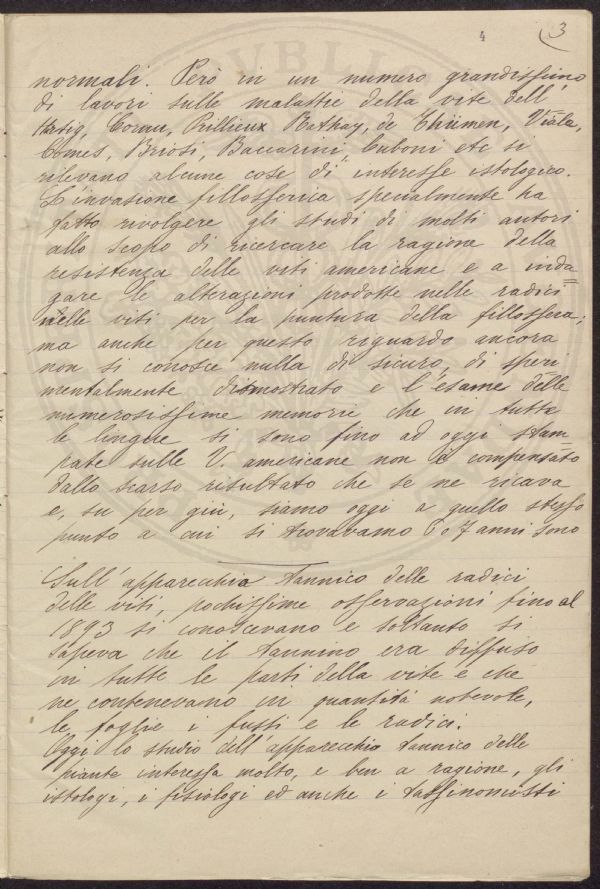 4 3
normali. Però in un numero grandissimo
di lavori sulle malattie della vite dell'
Hartig, Cornu, Prillieux Rathay, de Thümen, Viala,
Comes, Briosi, Baccarini, Cuboni etc si
rilevano alcune cose di interesse istologico.
L'invasione fillosserica specialmente ha
fatto rivolgere gli studi di molti autori
allo scopo di ricercare la ragione della
resistenza delle viti americane e a inda=
gare le alterazioni prodotte nelle radici
nelle viti per la puntura della fillossera;
ma anche per questo riguardo ancora
non si conosce nulla di sicuro, di speri
mentalmente dimostrato e l'esame delle
numerosissime memorie che in tutte
le lingue si sono fino ad oggi stam=
pate sulle V. americane non è compensato
dallo scarso risultato che se ne ricava
e, su per giù, siamo oggi a quello stesso
punto a cui si trovavamo 6 o 7 anni sono
Sull'apparecchio tannico delle radici
delle viti, pochissime osservazioni fino al
1893 si conoscevano e soltanto si
sapeva che il tannino era diffuso
in tutte le parti della vite e che
ne contenevano in quantità notevole,
le foglie i fusti e le radici.
Oggi lo studio dell'apparecchio tannico delle
piante interessa molto, e ben a ragione, gli
istologi, i fisiologi ed anche i tassinomisti